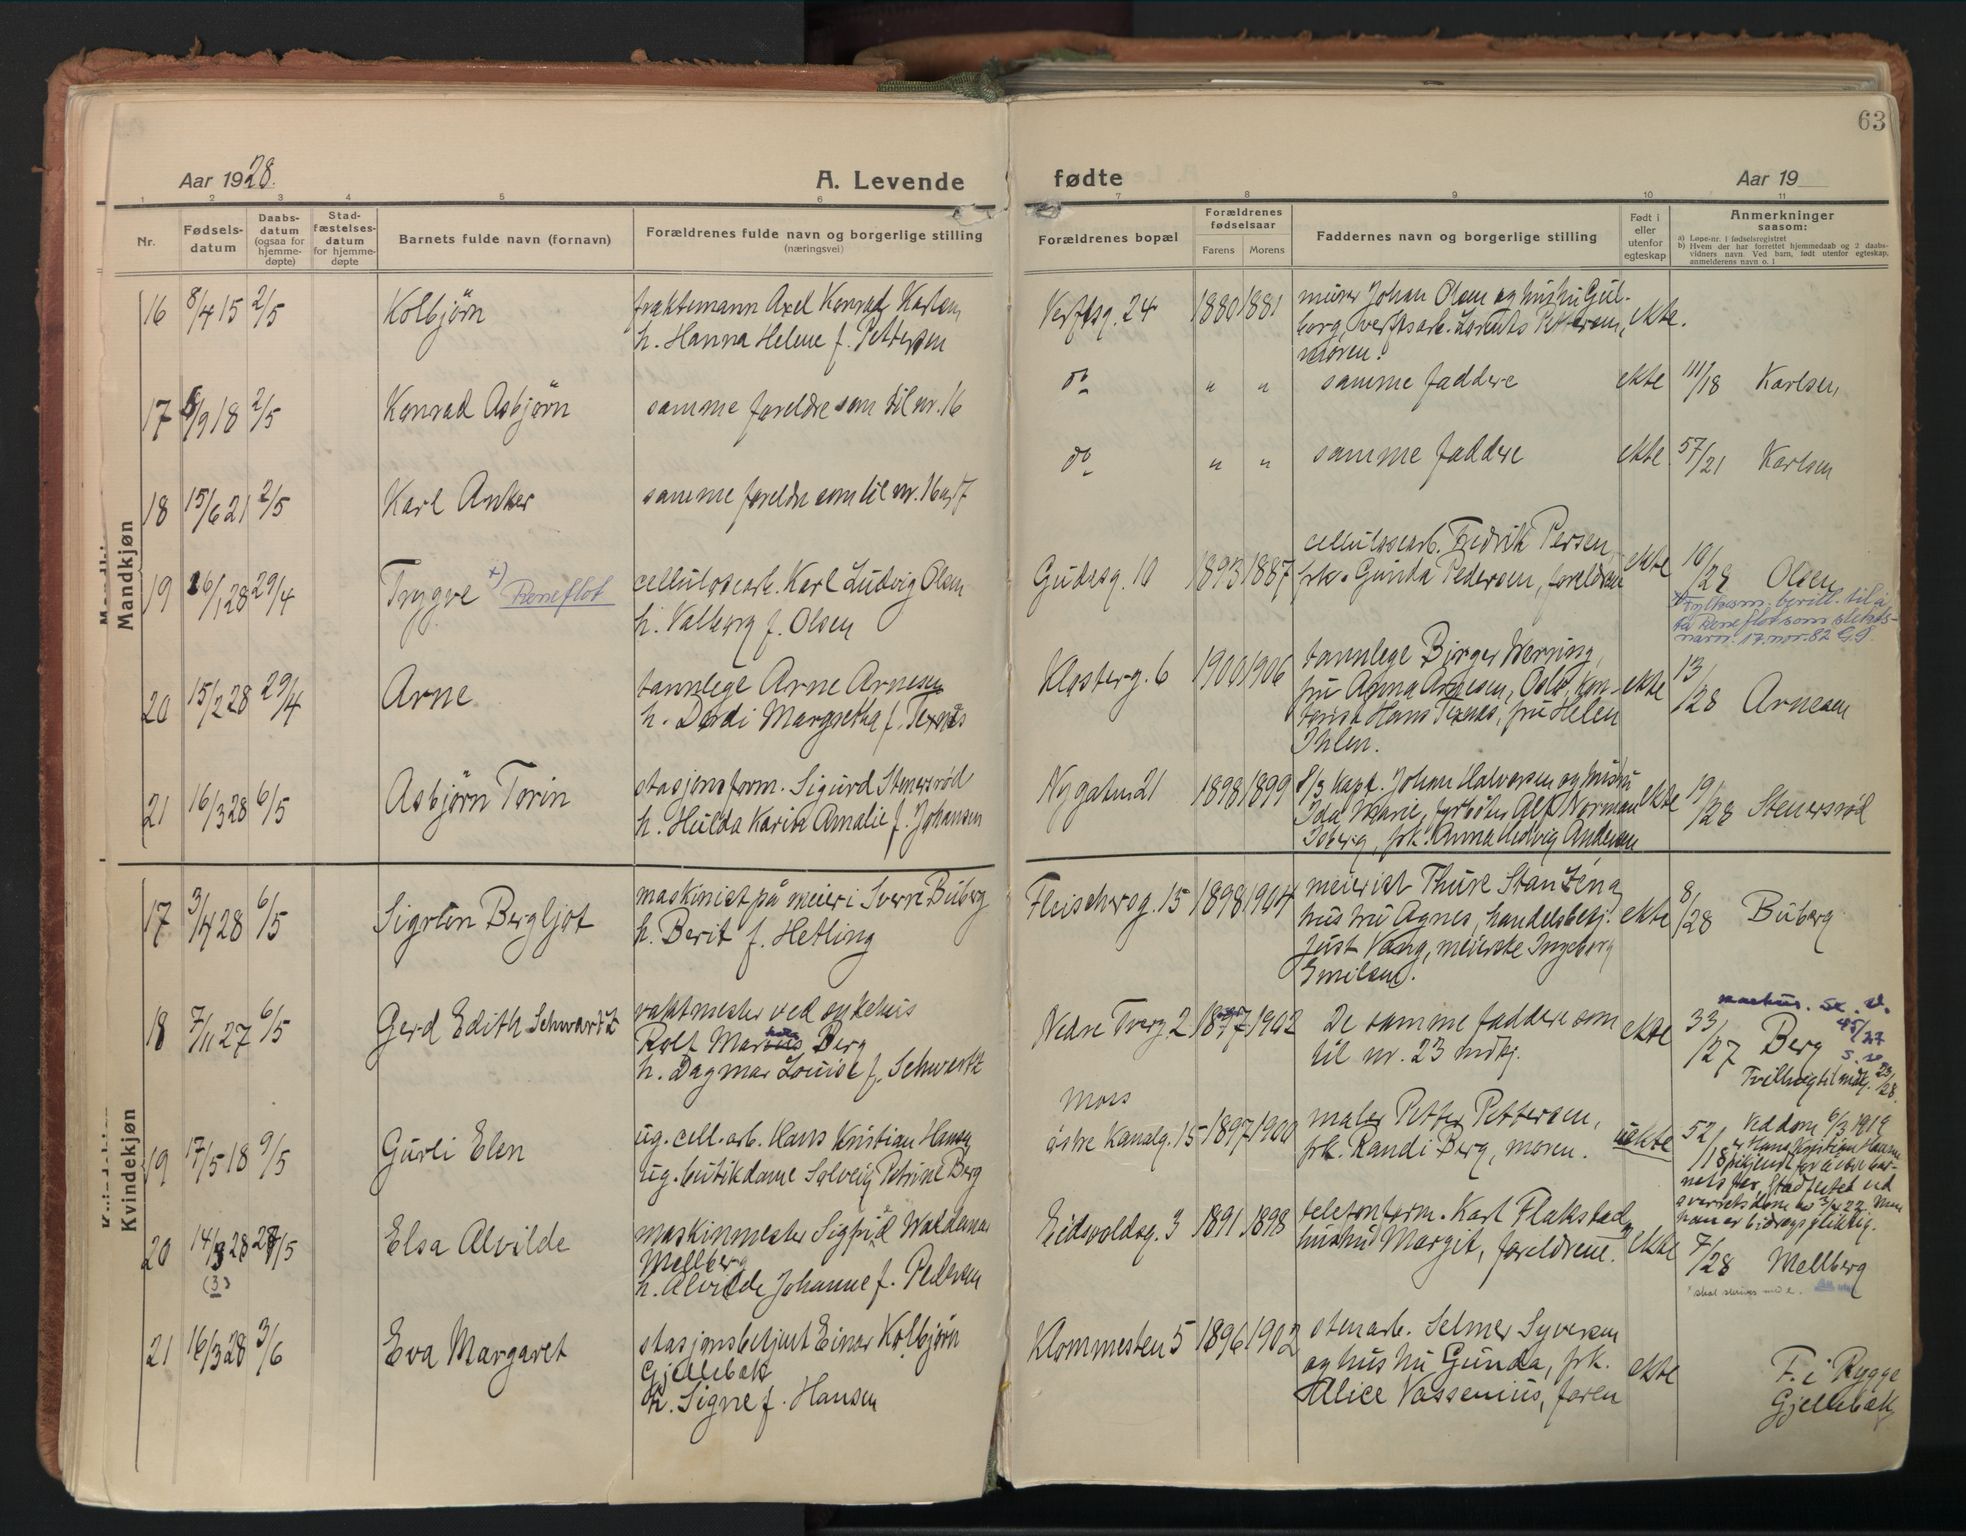 63
Aar 1928.
A. Levende
fødte
Aar 19
1 2 3 4 5 6 7 8 9 10 11
Nr.
Fødsels-
datum
Daabs-
datum
(ogsaa for
hjemme-
døpte)
Stad-
fæstelses-
datum
for hjemme-
døpte
Barnets fulde navn (fornavn)
Forældrenes fulde navn og borgerlige stilling
(næringsvei)
Forældrenes bopæl
Forældrenes
fødselsaar
Farens Morens
Faddernes navn og borgerlige stilling
Født i
eller
utenfor
egteskap
Anmerkninger
saasom:
a) Løpe-nr. i fødselsregistret
b) Hvem der har forrettet hjemmedaab og 2 daabs-
vidners navn. Ved barn, født utenfor egteskap,
anmelderens navn o. l
Mandkjøn
16 8/4 15 2/5 Kolbjörn
fraktemann Axel Konrad Karlsen
h. Hanna Helene f. Pettersen
Verftsg. 24 1880 1881
murer Johan Olsen og hustru Gul-
borg, verftsarb. Pettersen,
moren.
ekte.
17 5/9 18 2/5 Konrad Asbjörn
samme foreldre som til nr. 16
do " " samme faddere ekte 111/18 Karlsen
18 15/6 21 2/5 Karl Anker
samme foreldre som til nr. 16 og 17
do " " samme faddere ekte 57/21 Karlsen
19 16/1 28 29/4 Trygve x) Reneflot
cellulosearb. Karl Ludvig Olsen
h. Valborg f. Olsen
Gudesg. 10 1893 1887
cellulosearb. Fredrik Persen,
frk. Gunda Pedersen, foreldrene
ekte 10/28 Olsen
x Fylkesm. bevill. til å
ta Reneflot som slekts-
navn. 17. nov. 82 G.G.
20 15/2 28 29/4 Arne
tannlege Arne Arnesen
h. Dordi Margretha f. Texnes
Klosterg. 6 1900 1906
tannlege Birger Werring,
fru Anna Arnesen, Oslo, kon-
torist Hans Texnes, fru Helen
Ihlen.
ekte 13/28 Arnesen
21 16/3 28 6/5 Asbjörn Torin
stasjonsform. Sigurd Stenersröd
h. Hulda Karin Amalie f. Johansen
Nygatan 21 1898 1899
s/s kapt. Johan Halvorsen og hustru
Ida Marie, fyrböter Alf Norman
Isberg, frk. Anna Hedvig Andersen
ekte 19/28 Stenersröd
Kvindekjøn
17 3/4 28 6/5 Sigrun Bergljot
maskinist på meieri Sverre Buberg
h. Berit f. Hetling
Fleischersg. 15 1898 1904
meierist Thure Stanzéng
hustru Agnes, handelsbetj.
Just Vang, meierske Ingeborg
Emilsen.
ekte 8/28 Buberg
18 7/11 27 6/5 Gerd Edith Schwartz
vaktmester ved sykehus
Rolf Marius Berg
h. Dagmar Louise f. Schwartz
Nedre Tverg. 2 1897 1902
De samme faddere som
til nr. 23 mdkj.
ekte 33/27 Berg
Tvilling til mdkj. 23/28.
19 17/5 18 9/5 Gurli Elen
ug. cell.arb. Hans Kristian Hansen
ug. butikdame Solveig Petrine Berg
Moss
östre Kanalg. 15 1897 1900
maler Petter Pettersen,
frk. Randi Berg, moren.
uekte 52/18
Ved dom 6/3 1919
er Hans Kristian Hansen
frikjent for å være bar-
nets far, Stadfestet ved
overrettsdom av 3/4 22. Men
han er bidragspliktig.
20 14/3 28 27/5 Elsa Alvilde
(3)
maskinmester Sigfrid Waldemar
Mellberg
h. Alvilde Johanne f. Pedersen
Eidsvoldsg. 3 1891 1898
telefonform. Karl Flakstad,
hustru Margit, foreldrene.
ekte 7/28 Mellberg
x skal skrives med e.
21 16/3 28 3/6 Eva Margaret
stasjonsbetjent Einar Kolbjörn
Gjellebæk
h. Signe f. Hansen
Klommesten 5 1896 1902
stenarb. Selmer Syversen
og hustru Gunda, frk.
Alice Vassenius, faren
ekte
F. i Rygge
Gjellebæk